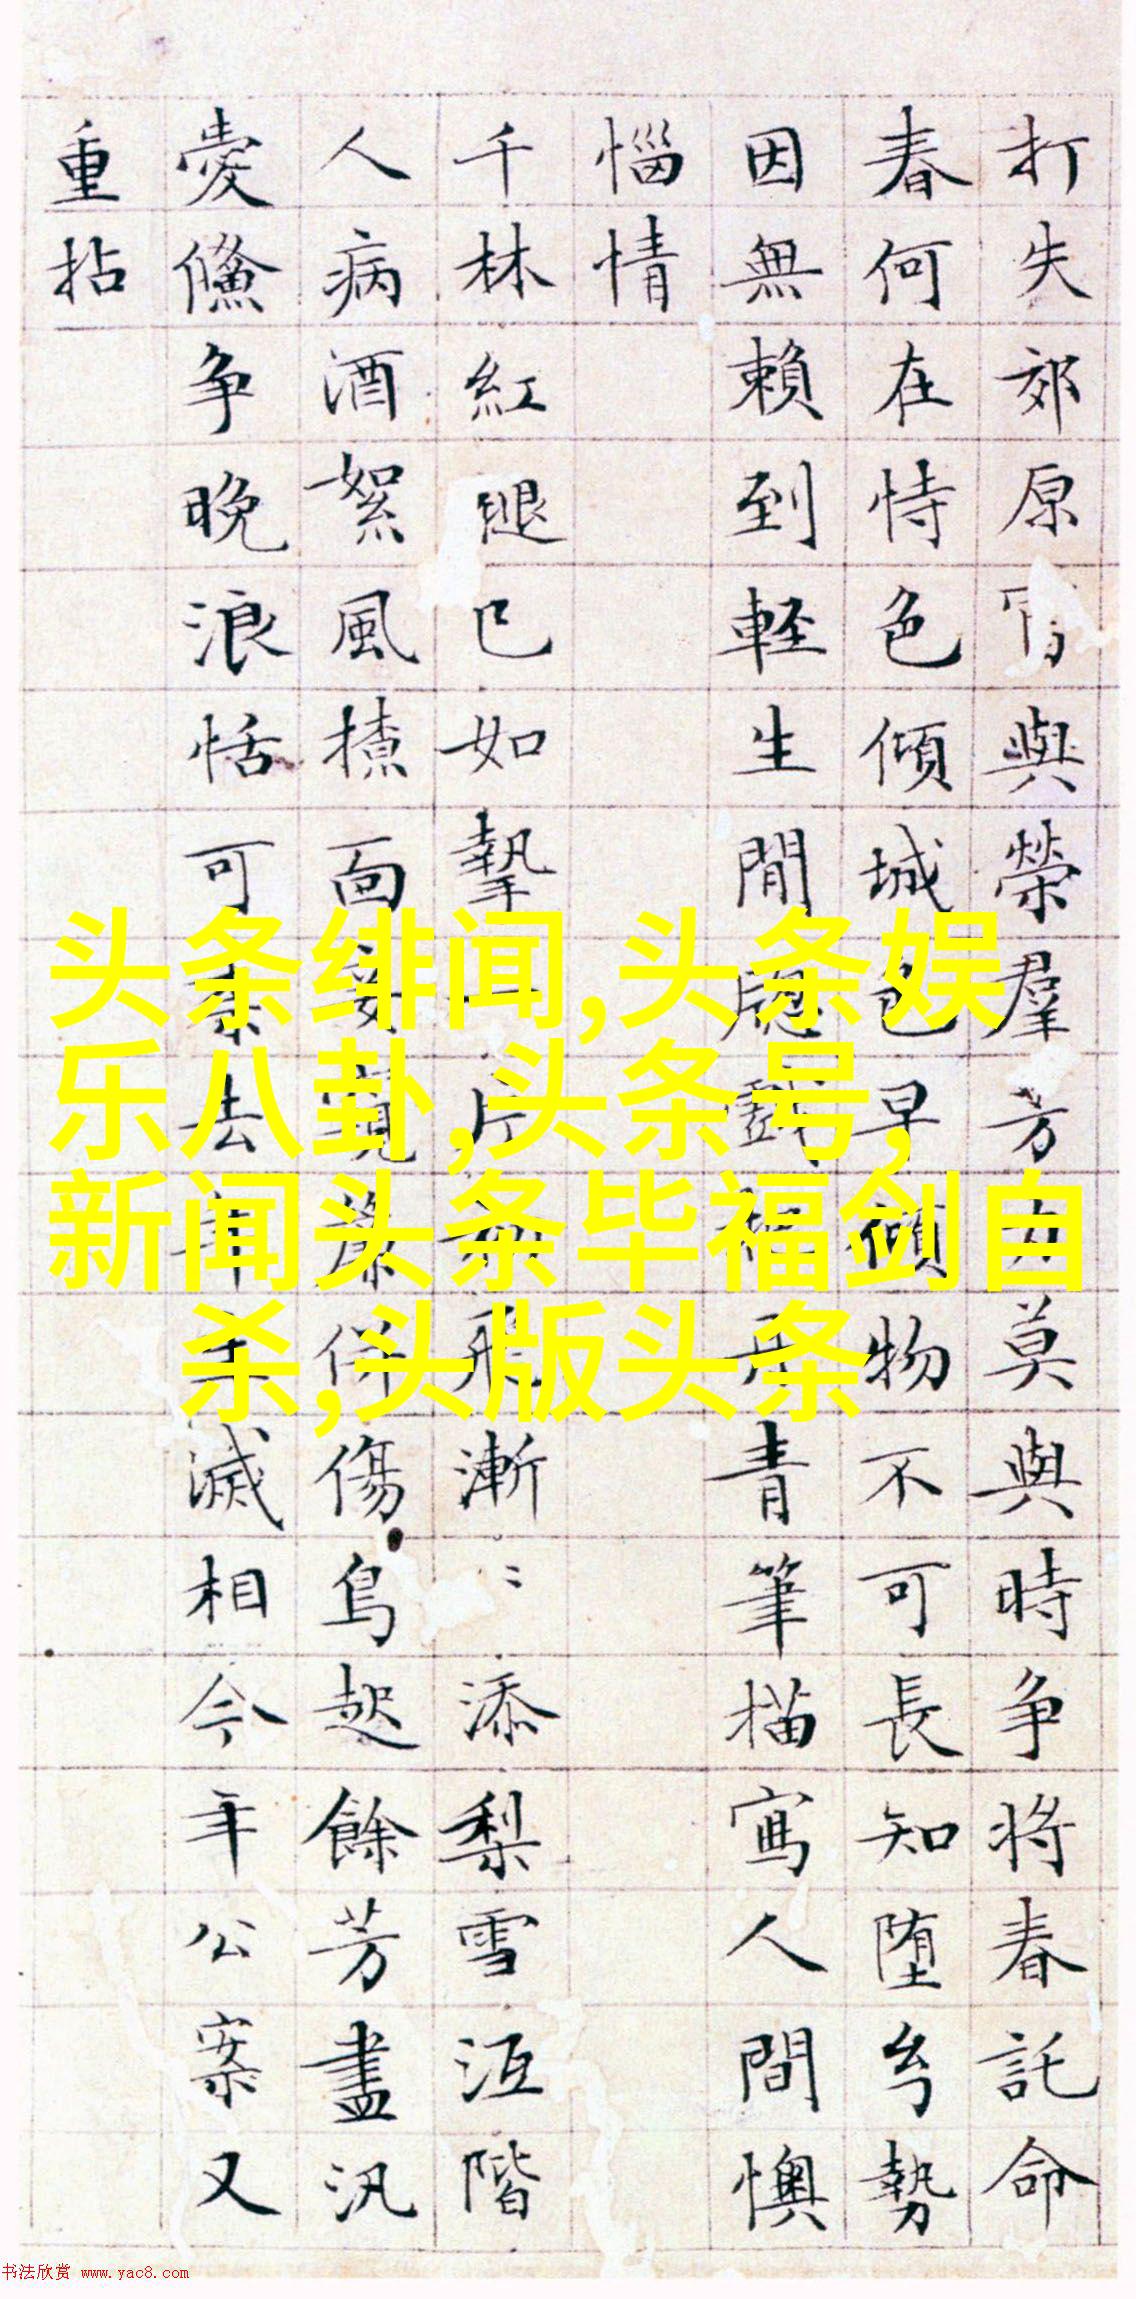 打失郊原與榮羣芳莫與時争將春託命
春何在恃色傾城色早傾物不可長知堕勢
因無賴到輕生閒青筆描寫人間懊
惱情
千林紅已如一片飛漸添梨雪沍階
人病酒絮風面簾傷鳥起餘芳盡汎
愛争晚浪恬可去年滅相今年公案又
重拈
头条绯闻,头条娱
乐八卦,头条号,
新闻头条毕福剑自
杀,头版头条
书法欣赏 www.yac8.com